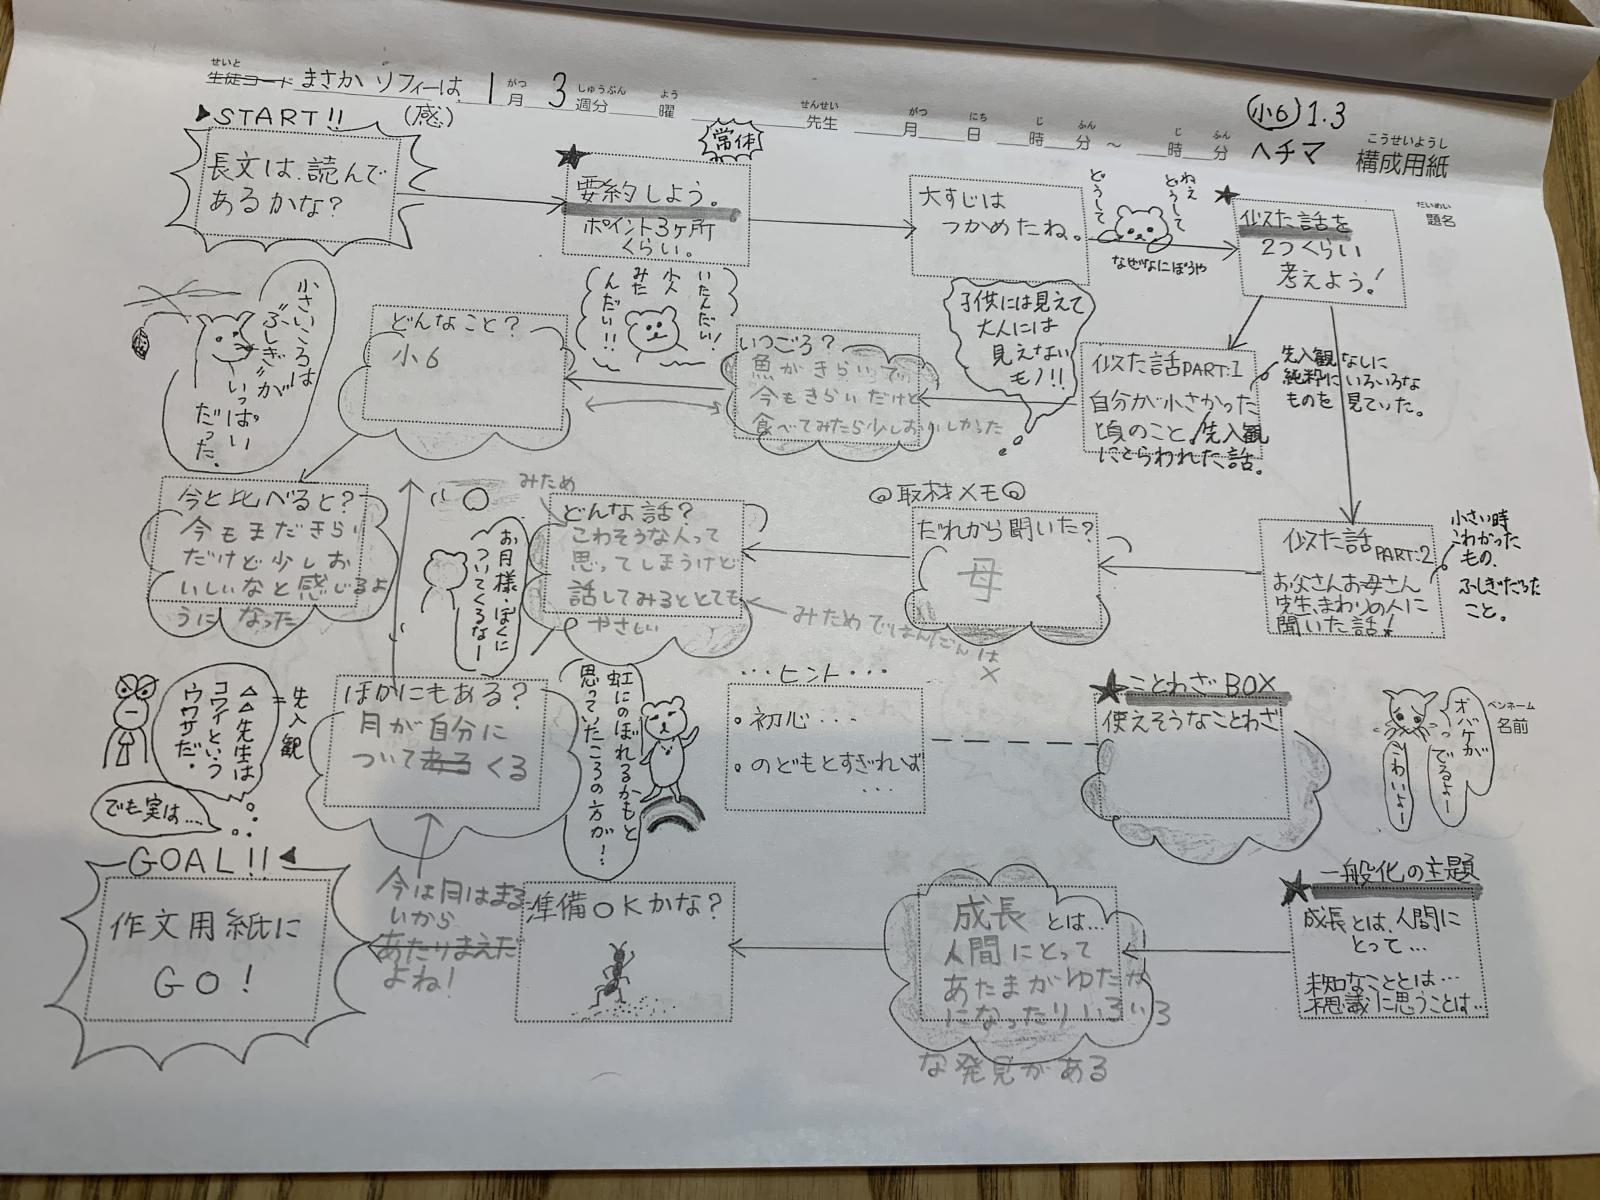 せいと がつ しゅうぶん よう せんせい がつ にち じ ふん じ ふん
生徒コード まさか ソフィーは、 1月 3週分 曜 先生 月 日 時 分 ～ 時 分
小6 1.3
ヘチマ
こうせいようし
構成用紙
START!!
(感)
長文は、読んで
あるかな?
常体
★
要約しよう。
ポイント3ヶ所
くらい。
大すじは
つかめたね。
ねぇ
どうして
どうして
なぜなにぼうや
★
似た話を
2つくらい
考えよう!
だいめい
題名
小さいころは
“ふしぎ”が
いっぱい
だった。
どんなこと?
小6
いたんだい!
みた
んだい!!
いつごろ?
魚がきらいで
今もきらいだけど
食べてみたら少しおいしかった
子供には見えて
大人には
見えない
モノ!!
似た話PART:1
自分が小さかった
頃のこと、先入観
にとらわれた話。
先入観なしに
純粋にいろいろな
ものを見ていた。
今と比べると?
今もまだきらい
だけど少しお
いしいなと感じるよ
うになった
お月様・ぼくに
ついてくるなー
みため
どんな話?
こわそうな人って
思ってしまうけど
話してみるととても
やさしい
みためではんだんは
×
取材メモ
だれから聞いた?
母
似た話PART:2
お父さんお母さん
先生、まわりの人に
聞いた話!
小さい時
こわかった
もの、
ふしぎだった
こと。
△△先生は
コワイという
ウワサだ。
=先入観
でも実は…
ほかにもある?
月が自分に
ついて
くる
虹にのぼれるかもと
思っていたころの方が…
…ヒント…
・初心…
・のどもとすぎれば
…
★ことわざBOX
使えそうなことわざ
オバケが
でるよー
こわいよー
ペンネーム
名前
GOAL!!
作文用紙に
GO!
今は月はまる
いから
あたりまえだ
よね!
準備OKかな?
成長とは…
人間にとって
あたまがゆたか
になったりいろいろ
な発見がある
★一般化の主題
成長とは、人間に
とって…
未知なこととは…
不思議に思うことは…